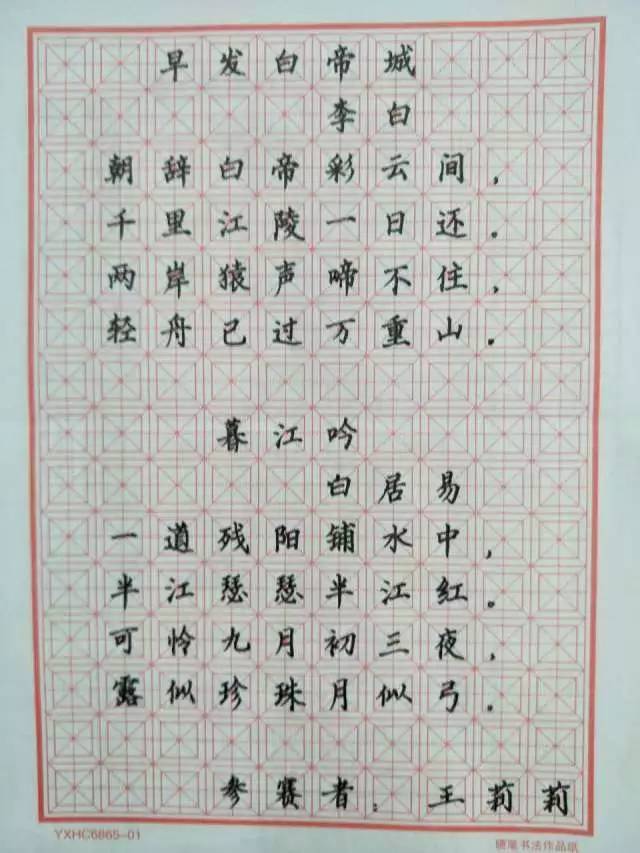 早发白帝城
李白
朝辞白帝彩云间，
千里江陵一日还。
两岸猿声啼不住，
轻舟已过万重山。
暮江吟
白居易
一道残阳铺水中，
半江瑟瑟半江红。
可怜九月初三夜，
露似珍珠月似弓。
参赛者：王莉莉
YXHC6865-01
硬笔书法作品纸